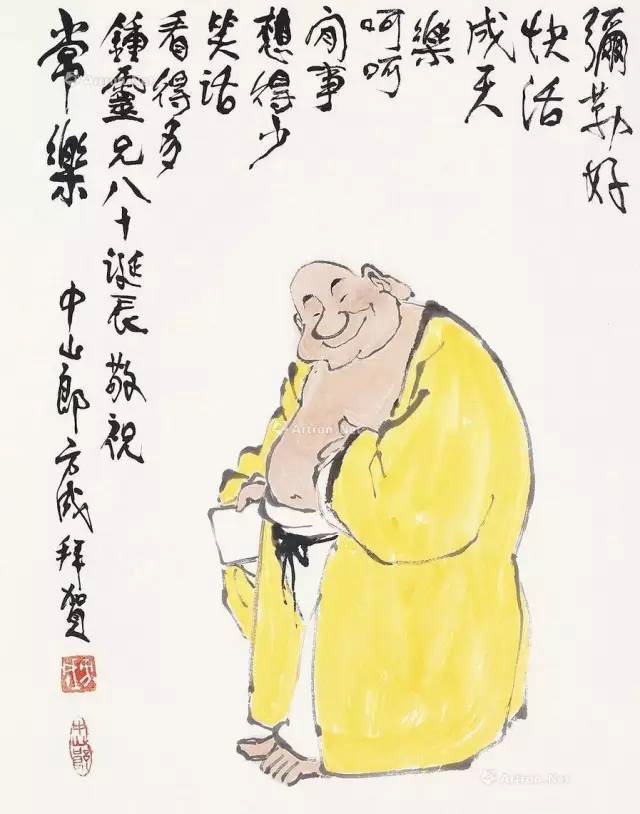 彌勒好
快活
成天
樂
呵呵
閑事
想得少
笑話
看得多
鍾靈兄八十誕辰敬祝
常樂
中山郎方成拜賀
方成
中山郎
Artron.Net
Artron.Net
Artron.Net